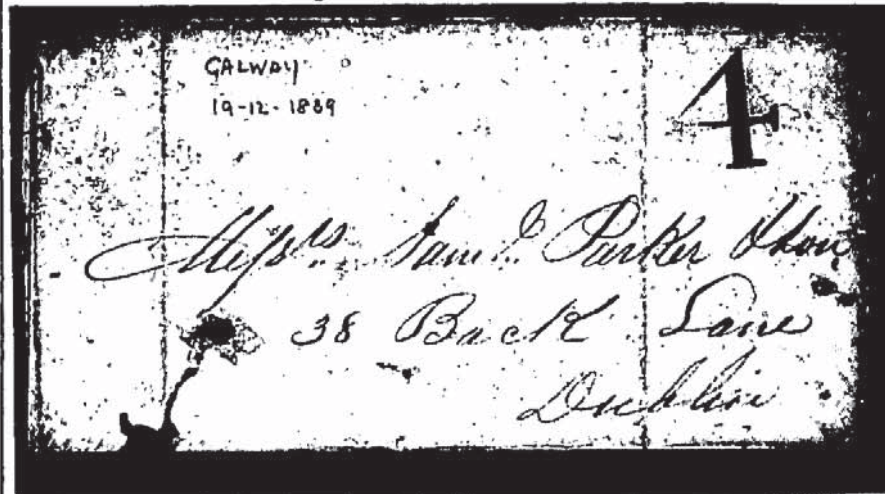 GALWAY
19-12-1839
4
Messrs. Saml. Parker & Son
38 Back Lane
Dublin